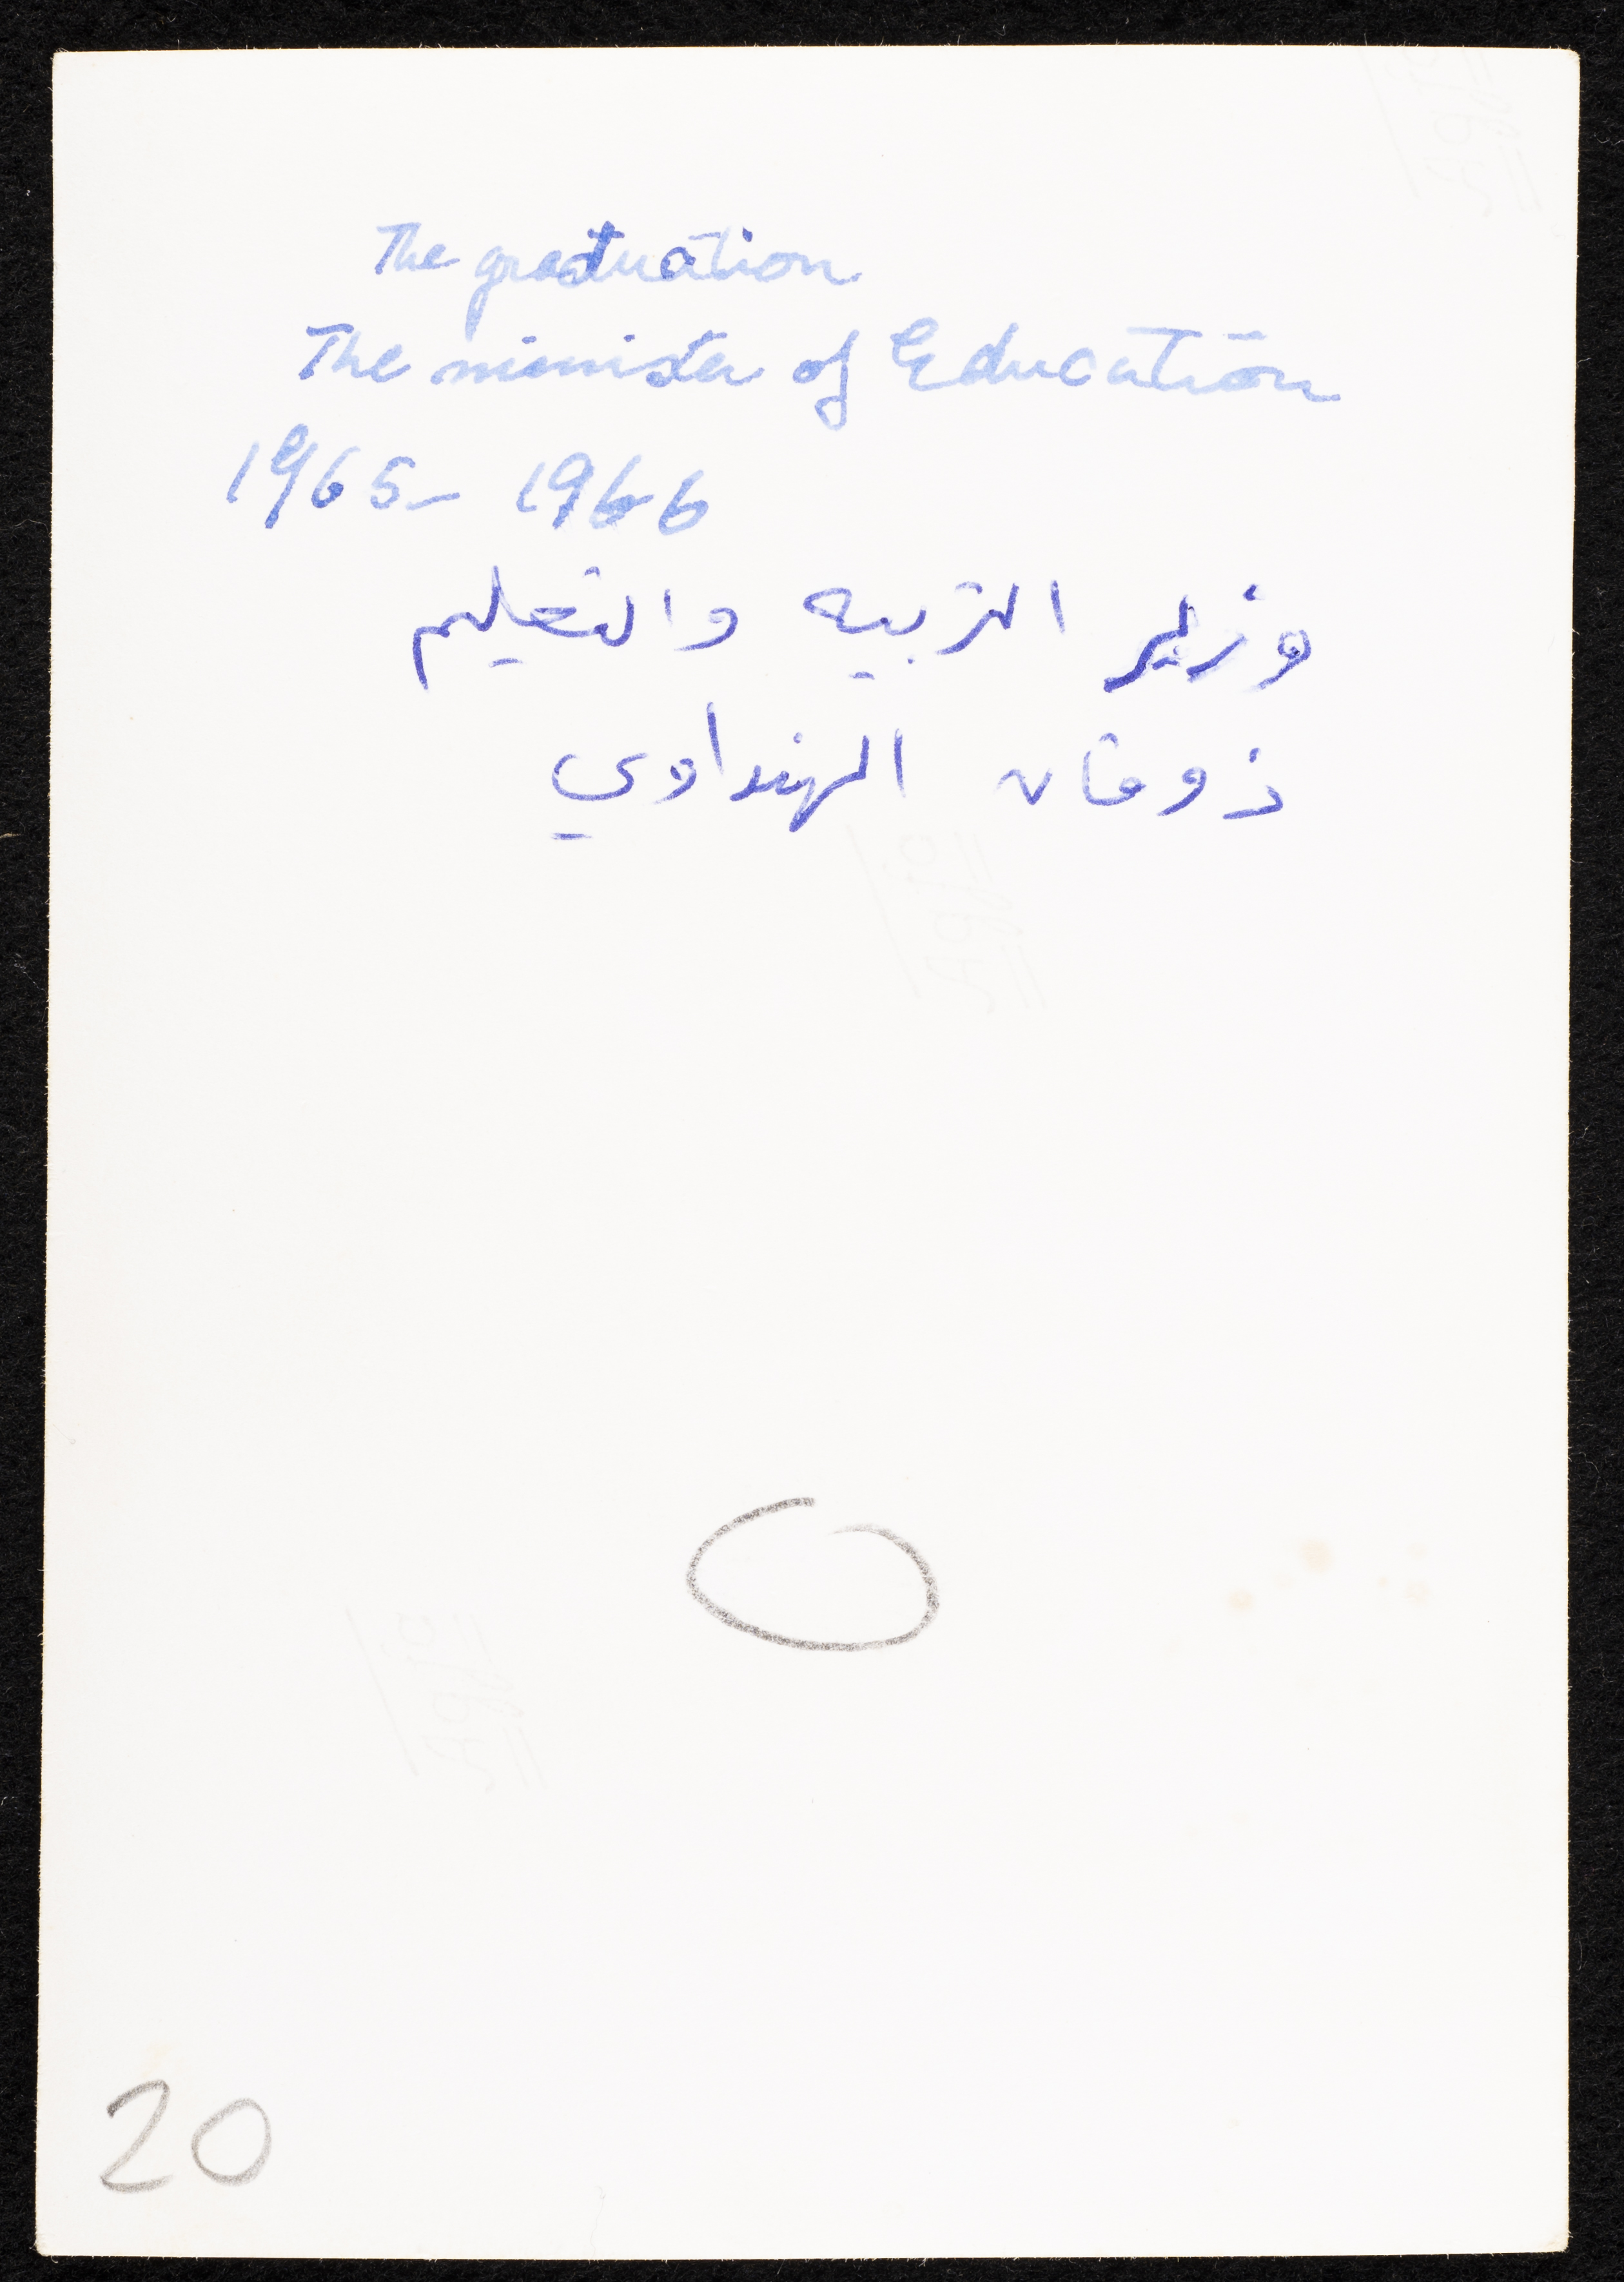 The graduation
The minister of Education
1965 - 1966
وزير التربيه والتعليم
ذوقان الهنداوي
20